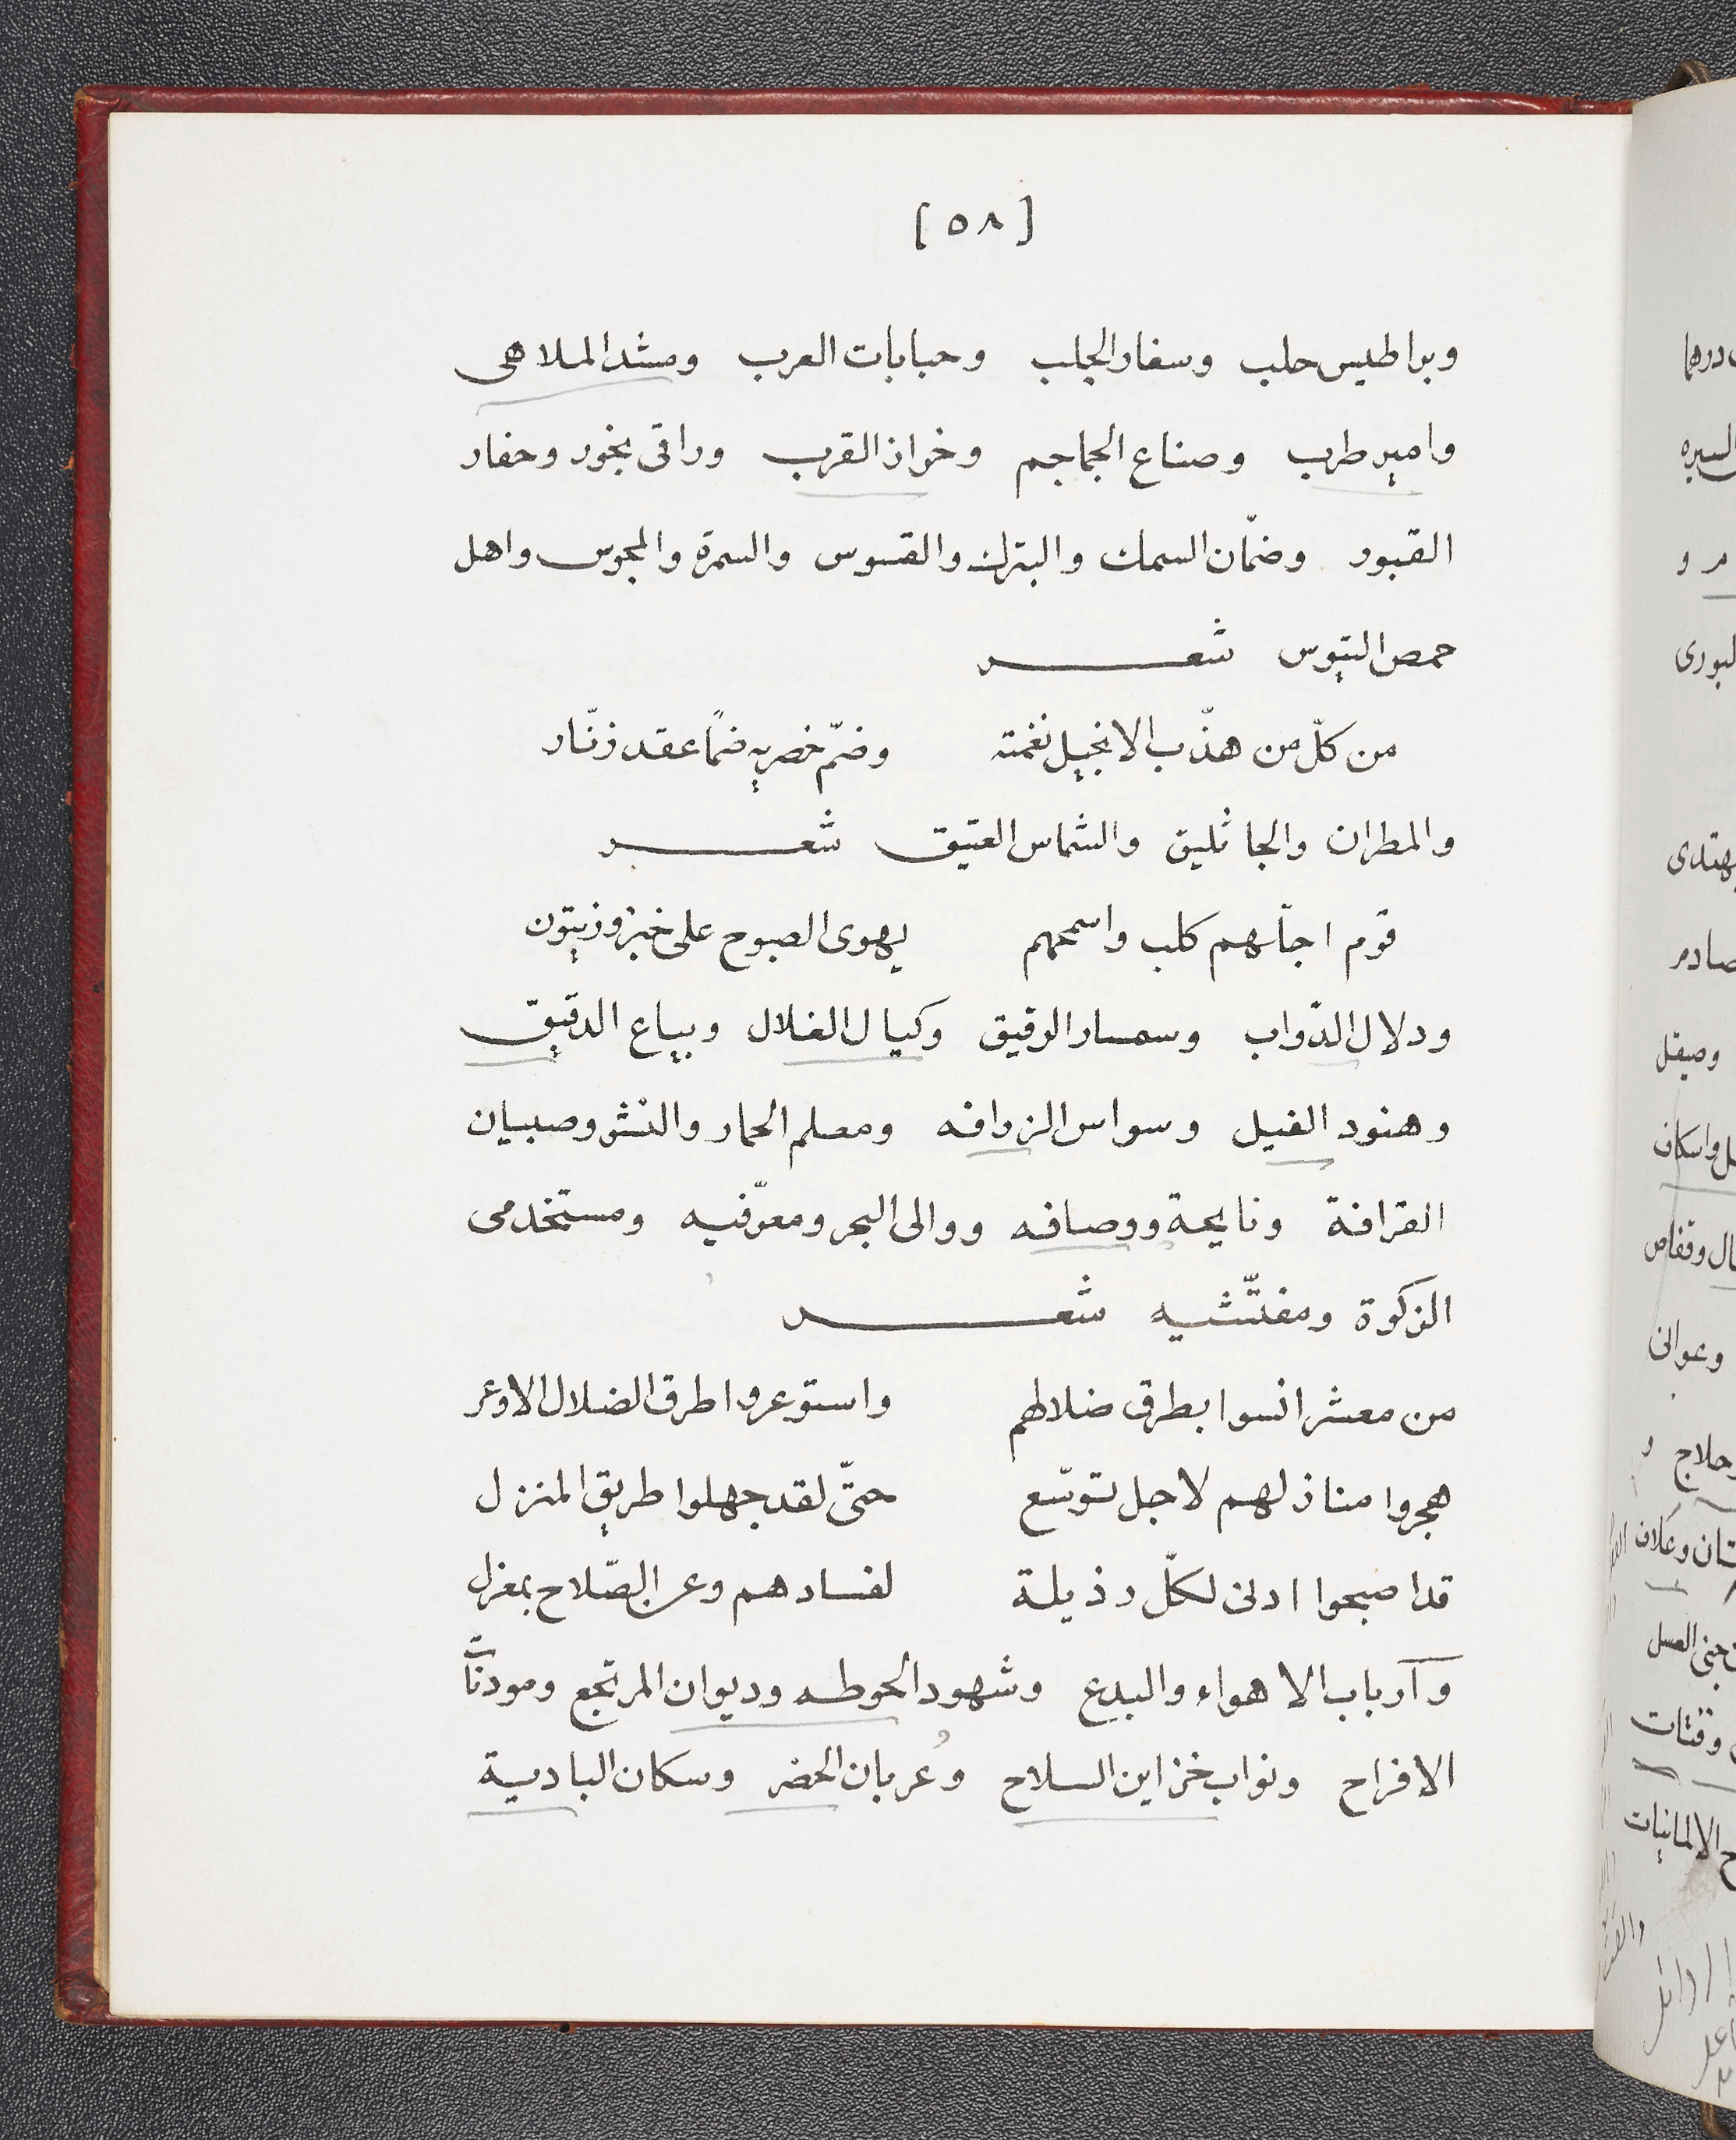 [ ٥٨ ]
وبراطيس حلب وسفار الجلب وحبابات العرب ومشد الملاهى
وامير طرب وصناع الجماجم وخراز القرب وراقى بخور وحفار
القبور وضمّان السمك والبترك والقسوس والسمرة والمجوس واهل
حمص التيوس شعر
من كلّ من هذّب الانجيل نغمته وضمّ خصريه ضمًا عقد زنّار
والمطران والجاثليق والشماس العتيق شعر
قوم اجلّهم كلب واسمحهم يهوى الصبوح على خبز وزيتون
ودلال الدّواب وسمسار الرقيق وكيال الغلال وبياع الدقيق
وهنود الفيل وسواس الزرافه ومعلم الحمار والنشر وصبيان
القرافة ونايحة ووصافه ووالى البحر ومعرّفيه ومستخدمى
الزكوة ومفتّشيه شعر
من معشر انسوا بطرق ضلالهم واستوعروا طرق الضلال الاوعر
هجروا منازلهم لاجل توسّع حتّى لقد جهلوا طريق المنزل
قد اصبحوا ادنى لكلّ رذيلة لفسادهم وعن الصّلاح بمعزل
وآرباب الاهواء والبدع وشهود الحوطه وديوان المرتجع ومودنّا
الافراح ونواب خزاين السلاح وعربان الحضر وسكان البادية